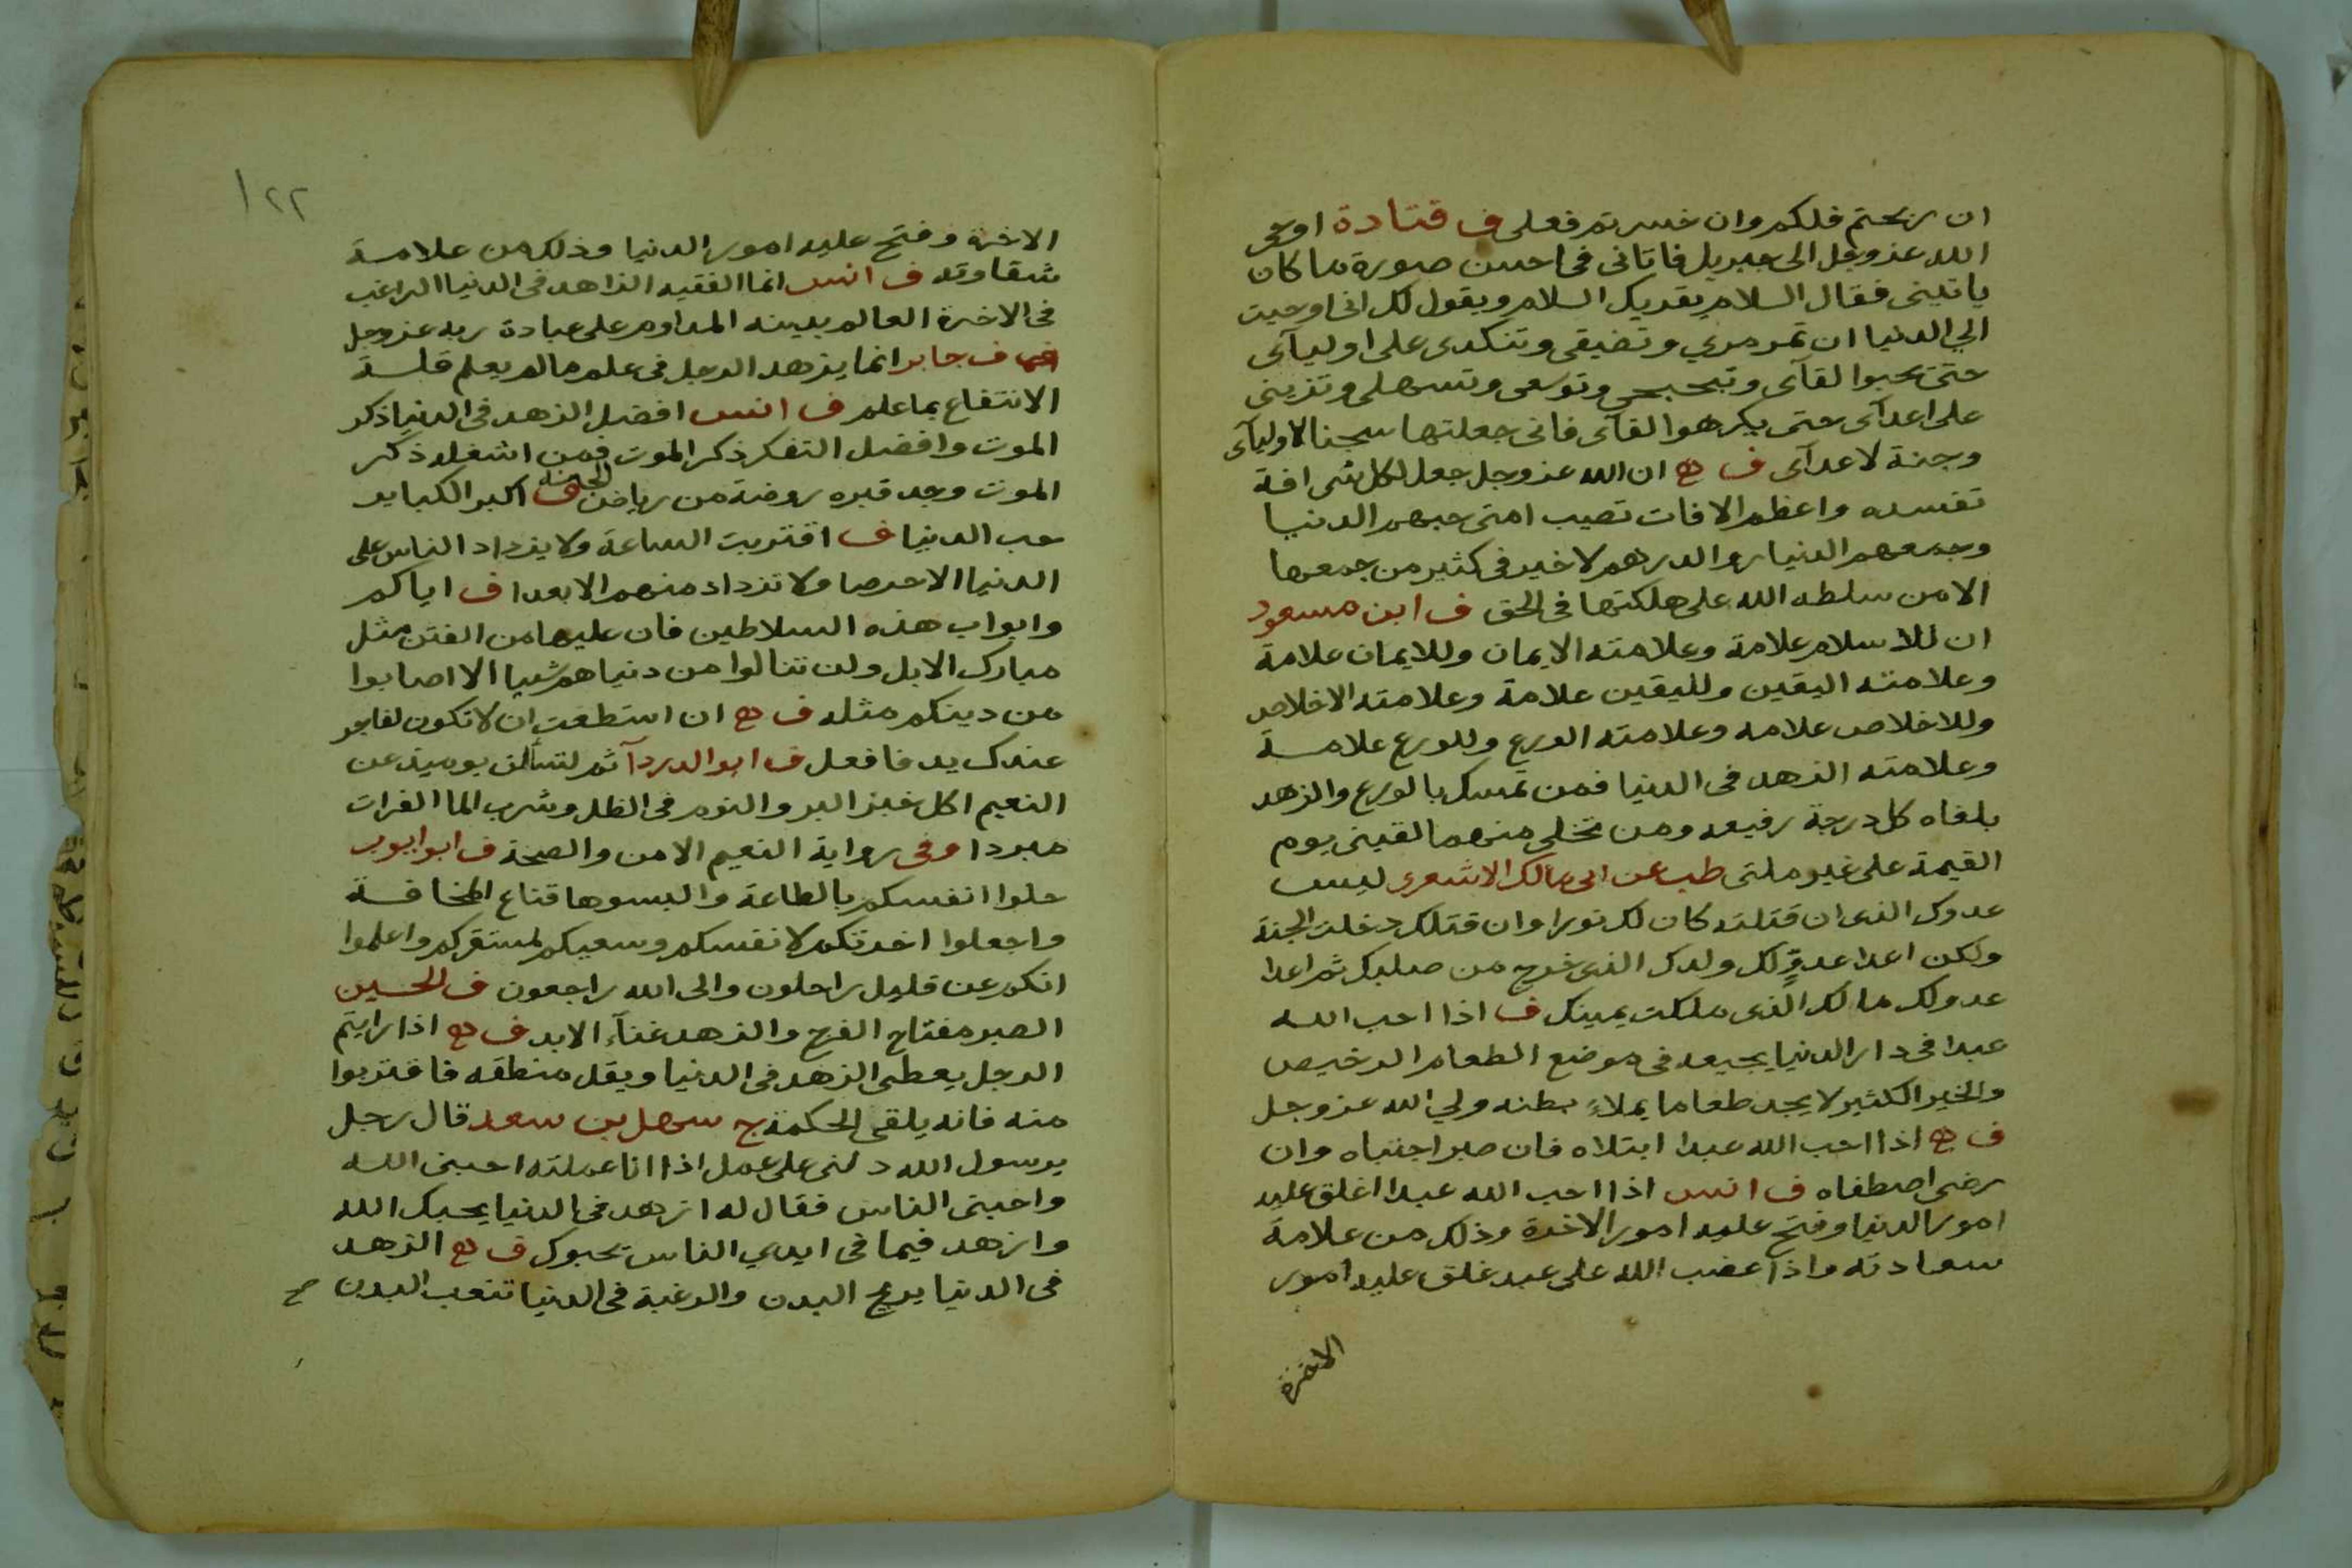 ان ربحتم فلكم وان خسرتم فعلى ف قتادة اوحى
الله عز وجل الى جبريل فاتانى فى احسن صورة ما كان
ياتينى فقال السلام يقريك السلام ويقول لك انى اوحيت
الي الدنيا ان تمرمري وتضيقى وتنكدى على اوليآى
حتى يحبوا لقآى وتبحبحى وتوسعى وتسهلى وتزينى
على اعدآى حتى يكرهوا لقآى فانى جعلتها سجنا لاوليآى
وجنة لاعدآى ف ه ان الله عز وجل جعل لكل شى افة
تفسده واعظم الافات تصيب امتى حبهم الدنيا
وجمعهم الدنيار والدرهم لا خير فى كثير من جمعها
الا من سلطه الله على هلكتها فى الحق ف ابن مسعود
ان للاسلام علامة وعلامته الايمان وللايمان علامة
وعلامته اليقين ولليقين علامة وعلامته الاخلاص
وللاخلاص علامه وعلامته الورع وللورع علامة
وعلامته الزهد فى الدنيا فمن تمسك بالورع والزهد
بلغاه كل درجة رفيعه ومن تخلى منهما لقينى يوم
القيمة على غير ملتى طب عن ابى مالك الاشعرى ليس
عدوك الذى ان قتلته كان لك نورا وان قتلك دخلت الجنة
ولكن اعدا عدوٍّ لك ولدك الذى خرج من صلبك ثم اعدا
عدو لك مالك الذى ملكت يمينك ف اذا احب الله
عبدا فى دار الدنيا يجيعه فى موضع الطعام الرخيص
والخير الكثير لا يجد طعاما يملاء بطنه ولي الله عز وجل
ف ه اذا احب الله عبدا ابتلاه فان صبر اجتباه وان
رضى اصطفاه ف انس اذا احب الله عبدا اغلق عليه
امور الدنيا وفتح عليه امور الاخرة وذلك من علامة
سعادته واذا غضب الله على عبد غلق عليه امور
الاخرة
١٢٢
الاخرة وفتح عليه امور الدنيا وذلك من علامة
شقاوته ف انس انما الفقيه الزاهد فى الدنيا الراغب
فى الاخرة العالم بدينه المداوم على عبادة ربه عز وجل
ف جابر انما يزهد الرجل فى علم مالم يعلم قلة
الانتفاع بما علم ف انس افضل الزهد فى الدنيا ذكر
الموت وافضل التفكر ذكر الموت فمن اشغله ذكر
الموت وجد قبره روضة من رياض الجنة ف اكبر الكباير
حب الدنيا ف اقتربت الساعة ولا يزداد الناس على
الدنيا الا حرصا ولا تزداد منهم الا بعدا ف اياكم
وابواب هذه السلاطين فان عليها من الفتن مثل
مبارك الابل ولن تنالوا من دنياهم شيا الا اصابوا
من دينكم مثله ف ه ان استطعت ان لا تكون لفاجر
عندك يد فافعل ف ابو الدردآ ثم لتسألن يوميذ عن
النعيم اكل خبز البر والنوم فى الظل وشرب الما الفرات
مبردا وفى رواية النعيم الامن والصحة ف ابو ايوب
حلوا انفسكم بالطاعة والبسوها قناع المخافة
واجعلوا اخرتكم لانفسكم وسعيكم لمستقركم واعلموا
انكم عن قليل راحلون والى الله راجعون ف الحسين
الصبر مفتاح الفرج والزهد غنآء الابد ف ه اذا رايتم
الرجل يعطى الزهد فى الدنيا ويقل منطقه فاقتربوا
منه فانه يلقى الحكمة ج سهل بن سعد قال رجل
يرسول الله دلنى على عمل اذا انا عملته احبنى الله
واحبنى الناس فقال له ازهد فى الدنيا يحبك الله
وازهد فيما فى ايدي الناس يحبوك ف ه الزهد
فى الدنيا يريح البدن والرغبة فى الدنيا تتعب البدن